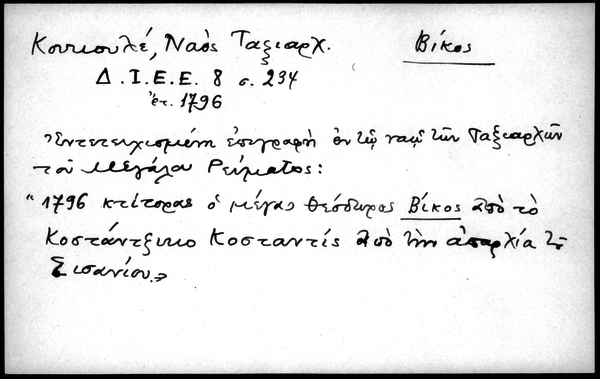 Κουτσουλέ, Ναὸς Ταξιαρχ. Βίκος
Δ.Ι.Ε.Ε. 8 σ. 234
ἔτ. 1796
Ἐντετειχισμένη ἐπιγραφὴ ἐν τῷ ναῷ τῶν Ταξιαρχῶν
τοῦ Μεγάλου Ρεύματος:
"1796 κτίτορας ὁ μέγας Θεόδωρος Βίκος ἀπὸ τὸ
Κοστάντζικο Κοσταντίς ἀπὸ τὴν ἀπαρχία τ͂
Σισανίου.»